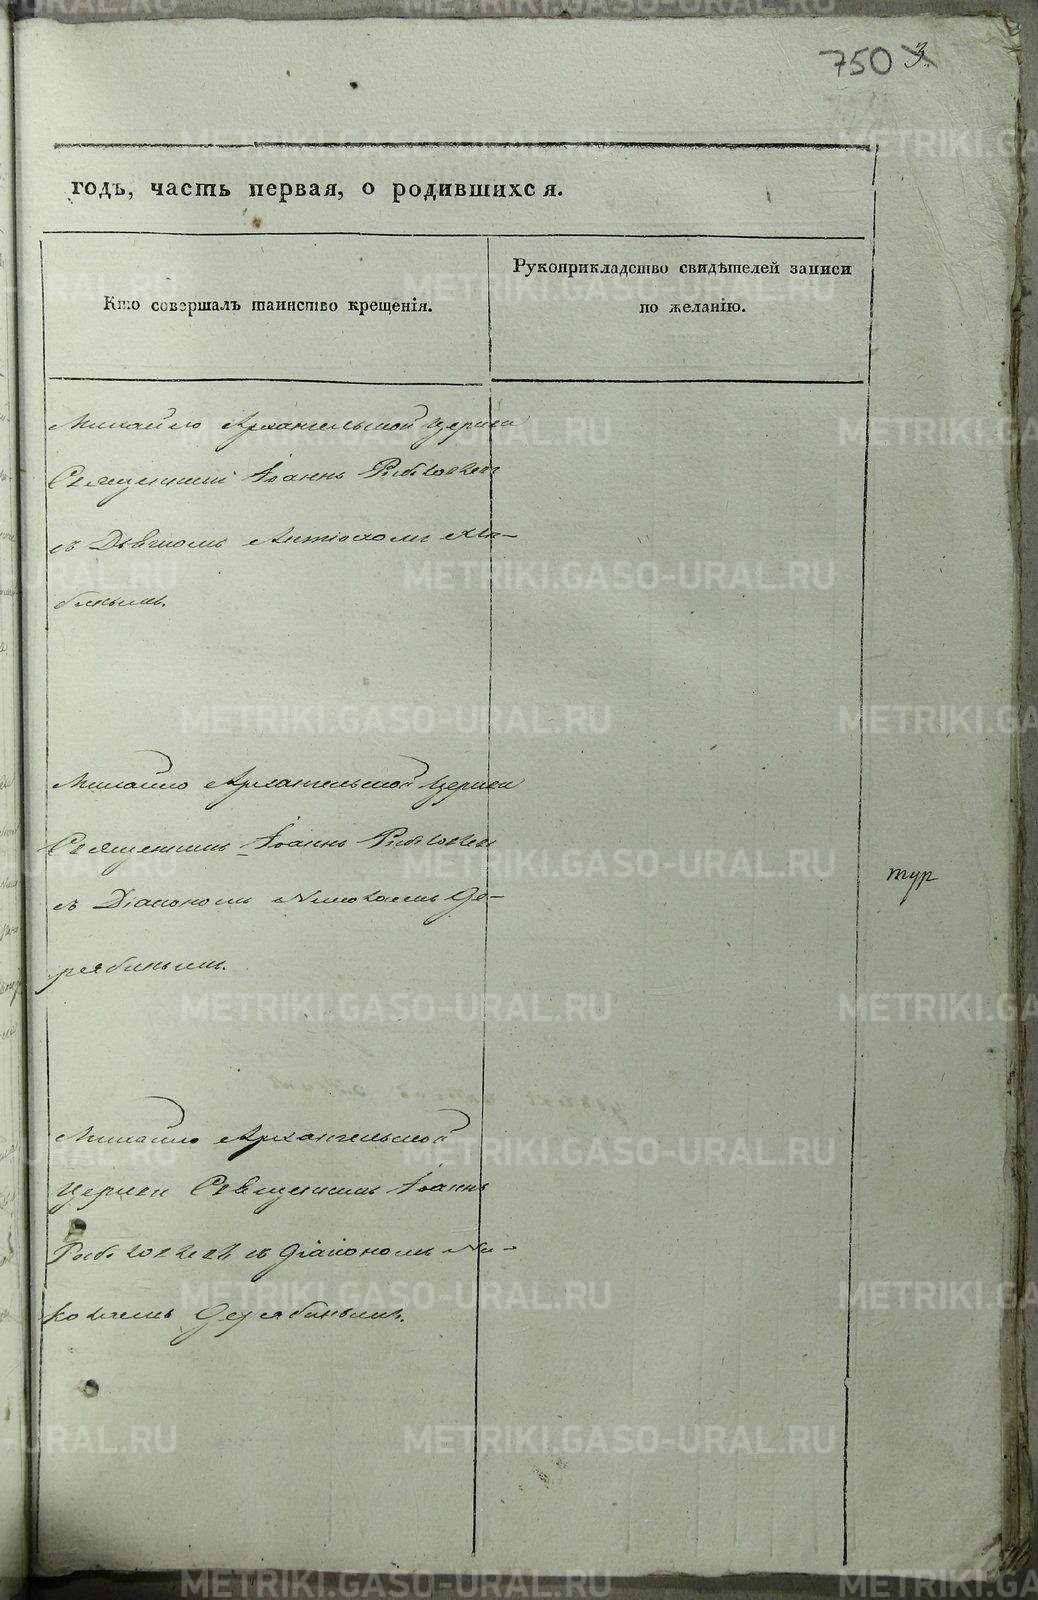 750 3
годъ, часть первая, о родившихся.
Кто совершалъ таинство крещенія.
Рукоприкладство свидѣтелей записи
по желанію.
Михайло Архангельской церкви
Священникъ Іоаннъ
съ Дьячкомъ Антіохомъ Хло-
бинымъ.
Михайло Архангельской церкви
Священникъ Іоаннъ
съ Діакономъ Николаемъ Де-
рябинымъ.
тур
Михайло Архангельской
церкви Священникъ Іоаннъ
съ Діакономъ Ни-
колаемъ Дерябинымъ.
METRIKI.GASO-URAL.RU